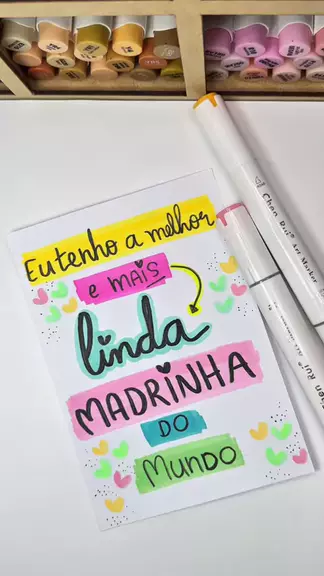 Eu tenho a melhor
e mais
linda
MADRINHA
DO
MUNDO
Chen Rui® Art Marker
Chen Rui®